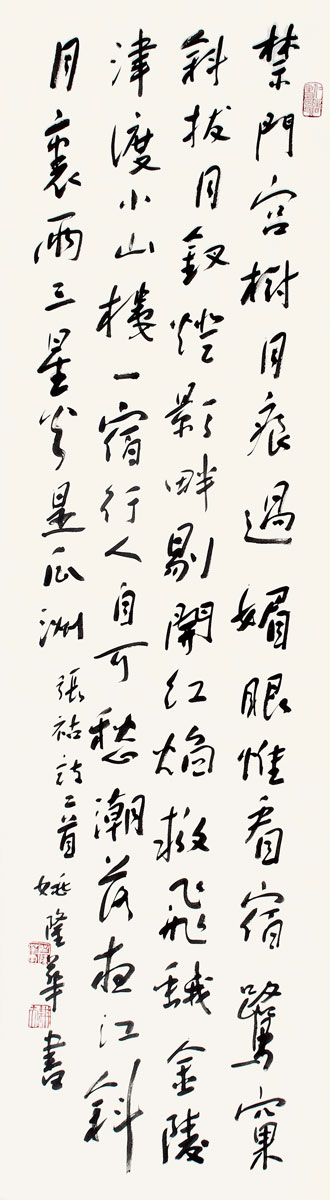 禁門宮樹月痕過媚眼惟看宿鷺窠
斜拔月釵燈影畔剔開紅焰救飛蛾金陵
津渡小山樓一宿行人自可愁潮落夜江斜
月裏兩三星火是瓜洲張祜詩二首姚隆華書